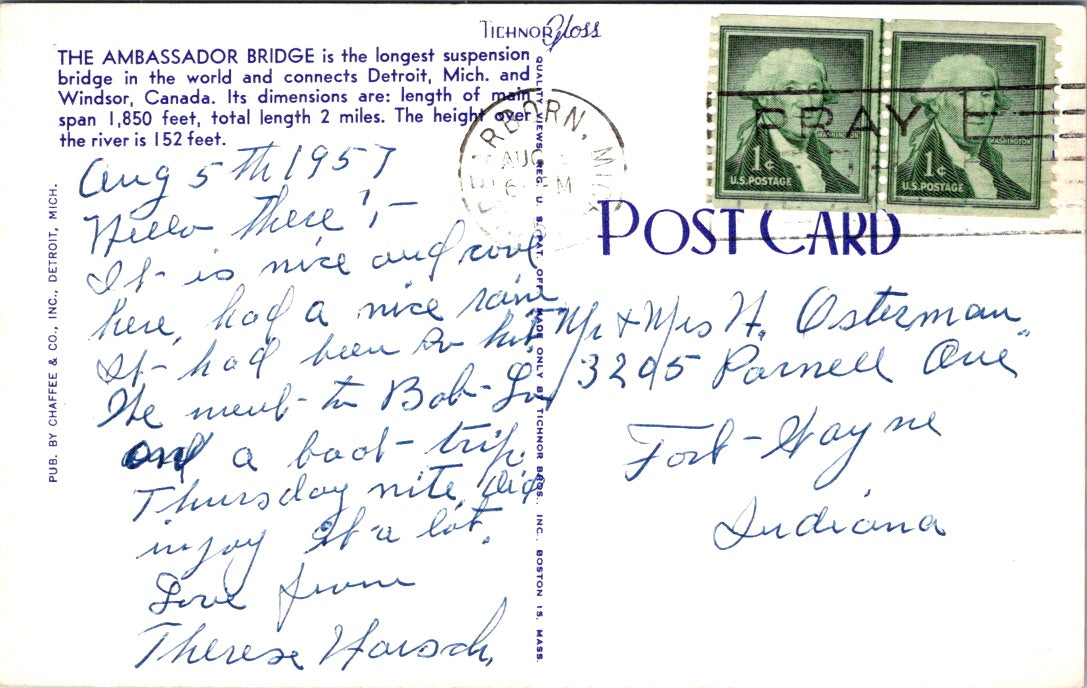 TICHNOR Gloss
THE AMBASSADOR BRIDGE is the longest suspension
bridge in the world and connects Detroit, Mich. and
Windsor, Canada. Its dimensions are: length of main
span 1,850 feet, total length 2 miles. The height over
the river is 152 feet.
PUB. BY CHAFFEE & CO., INC., DETROIT, MICH.
QUALITY VIEWS, REG. U. S. PAT. OFF. MADE ONLY BY TICHNOR BROS., INC., BOSTON 15, MASS.
RBORN, MI
AUG
6 PM
PRAY
WASHINGTON
1¢
U.S. POSTAGE
WASHINGTON
1¢
U.S. POSTAGE
POST CARD
Aug 5th 1957
Hello there!,—
It is nice and cool
here, had a nice rain
It had been so hot,
We went to Bob-Lo
on a boat-trip
Thursday nite, did
injoy it a lot.
Love from
Therese
Mr & Mrs H. Osterman
3205 Parnell Ave
Fort-Wayne
Indiana